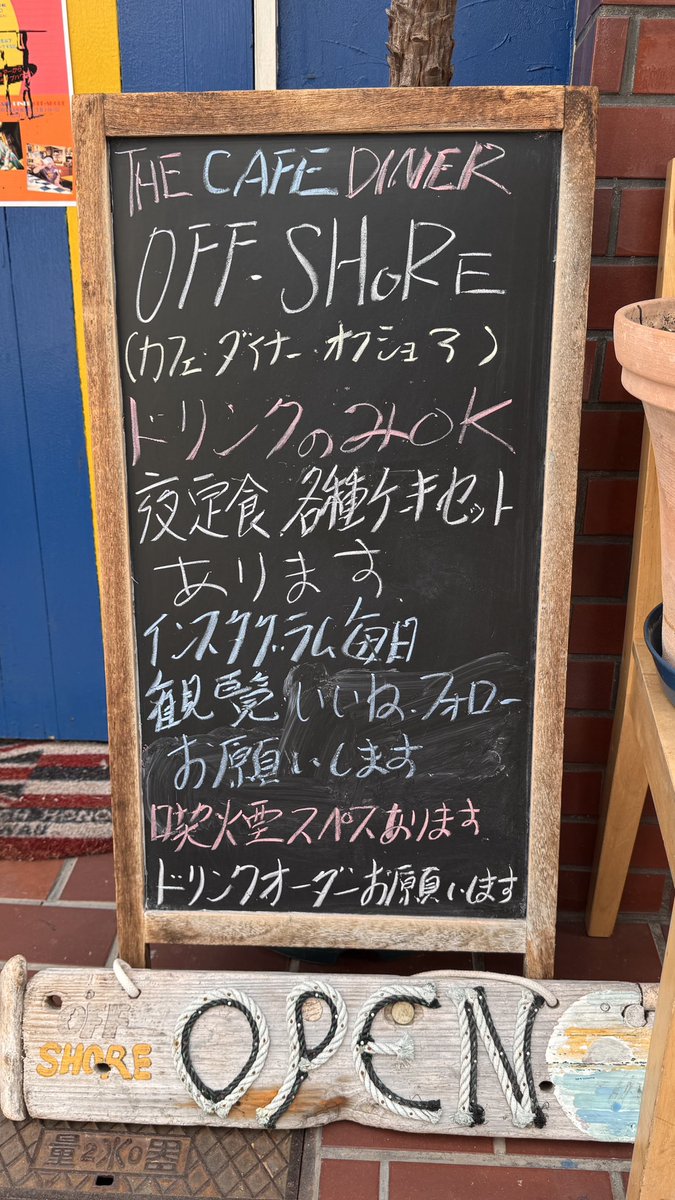 THE CAFE DINER
OFF. SHORE
(カフェ.ダイナー.オフショア)
ドリンクのみOK
夜定食.各種ケーキセット
あります.
インスタグラム毎日
観覧いいね.フォロー
お願いします.
喫煙スペスあります
ドリンクオーダーお願いします
OFF
SHORE
OPEN
量水器